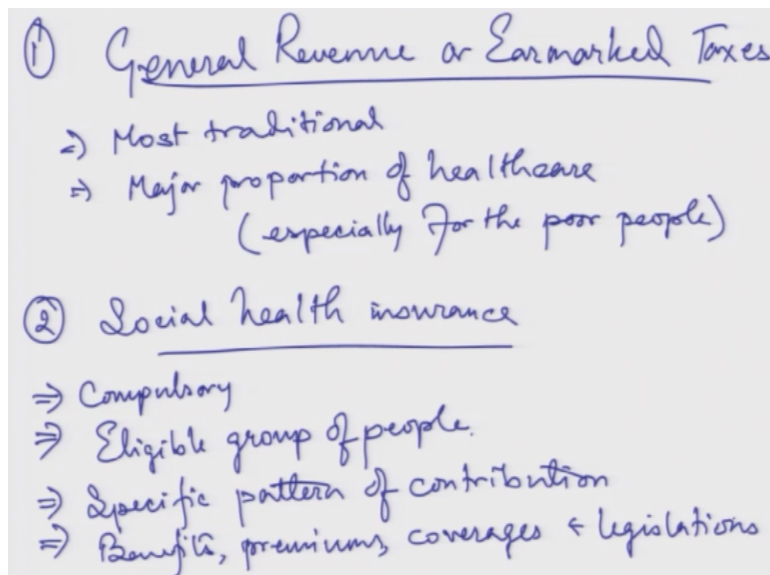 ① General Revenue or Earmarked Taxes
⇒ Most traditional
⇒ Major proportion of healthcare
(especially for the poor people)
② Social health insurance
⇒ Compulsory
⇒ Eligible group of people.
⇒ Specific pattern of contribution
⇒ Benefits, premiums, coverages & legislations